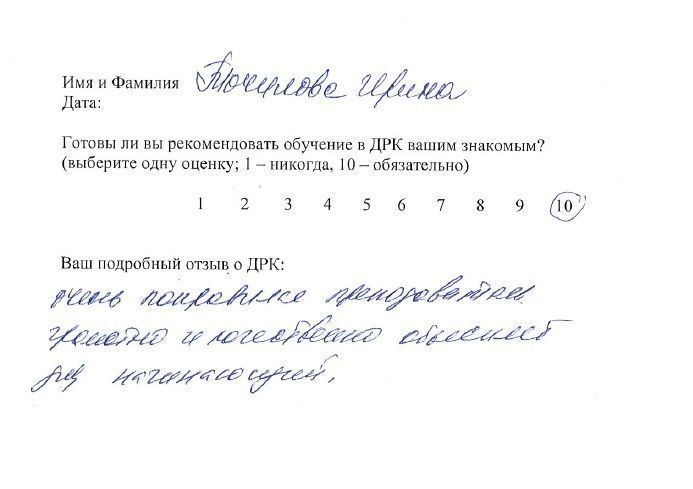 Имя и Фамилия Точилова Ирина
Дата:
Готовы ли вы рекомендовать обучение в ДРК вашим знакомым?
(выберите одну оценку; 1 – никогда, 10 – обязательно)
1 2 3 4 5 6 7 8 9 10
Ваш подробный отзыв о ДРК:
очень понравился преподаватель
грамотно и качественно объясняет
для начинающий.